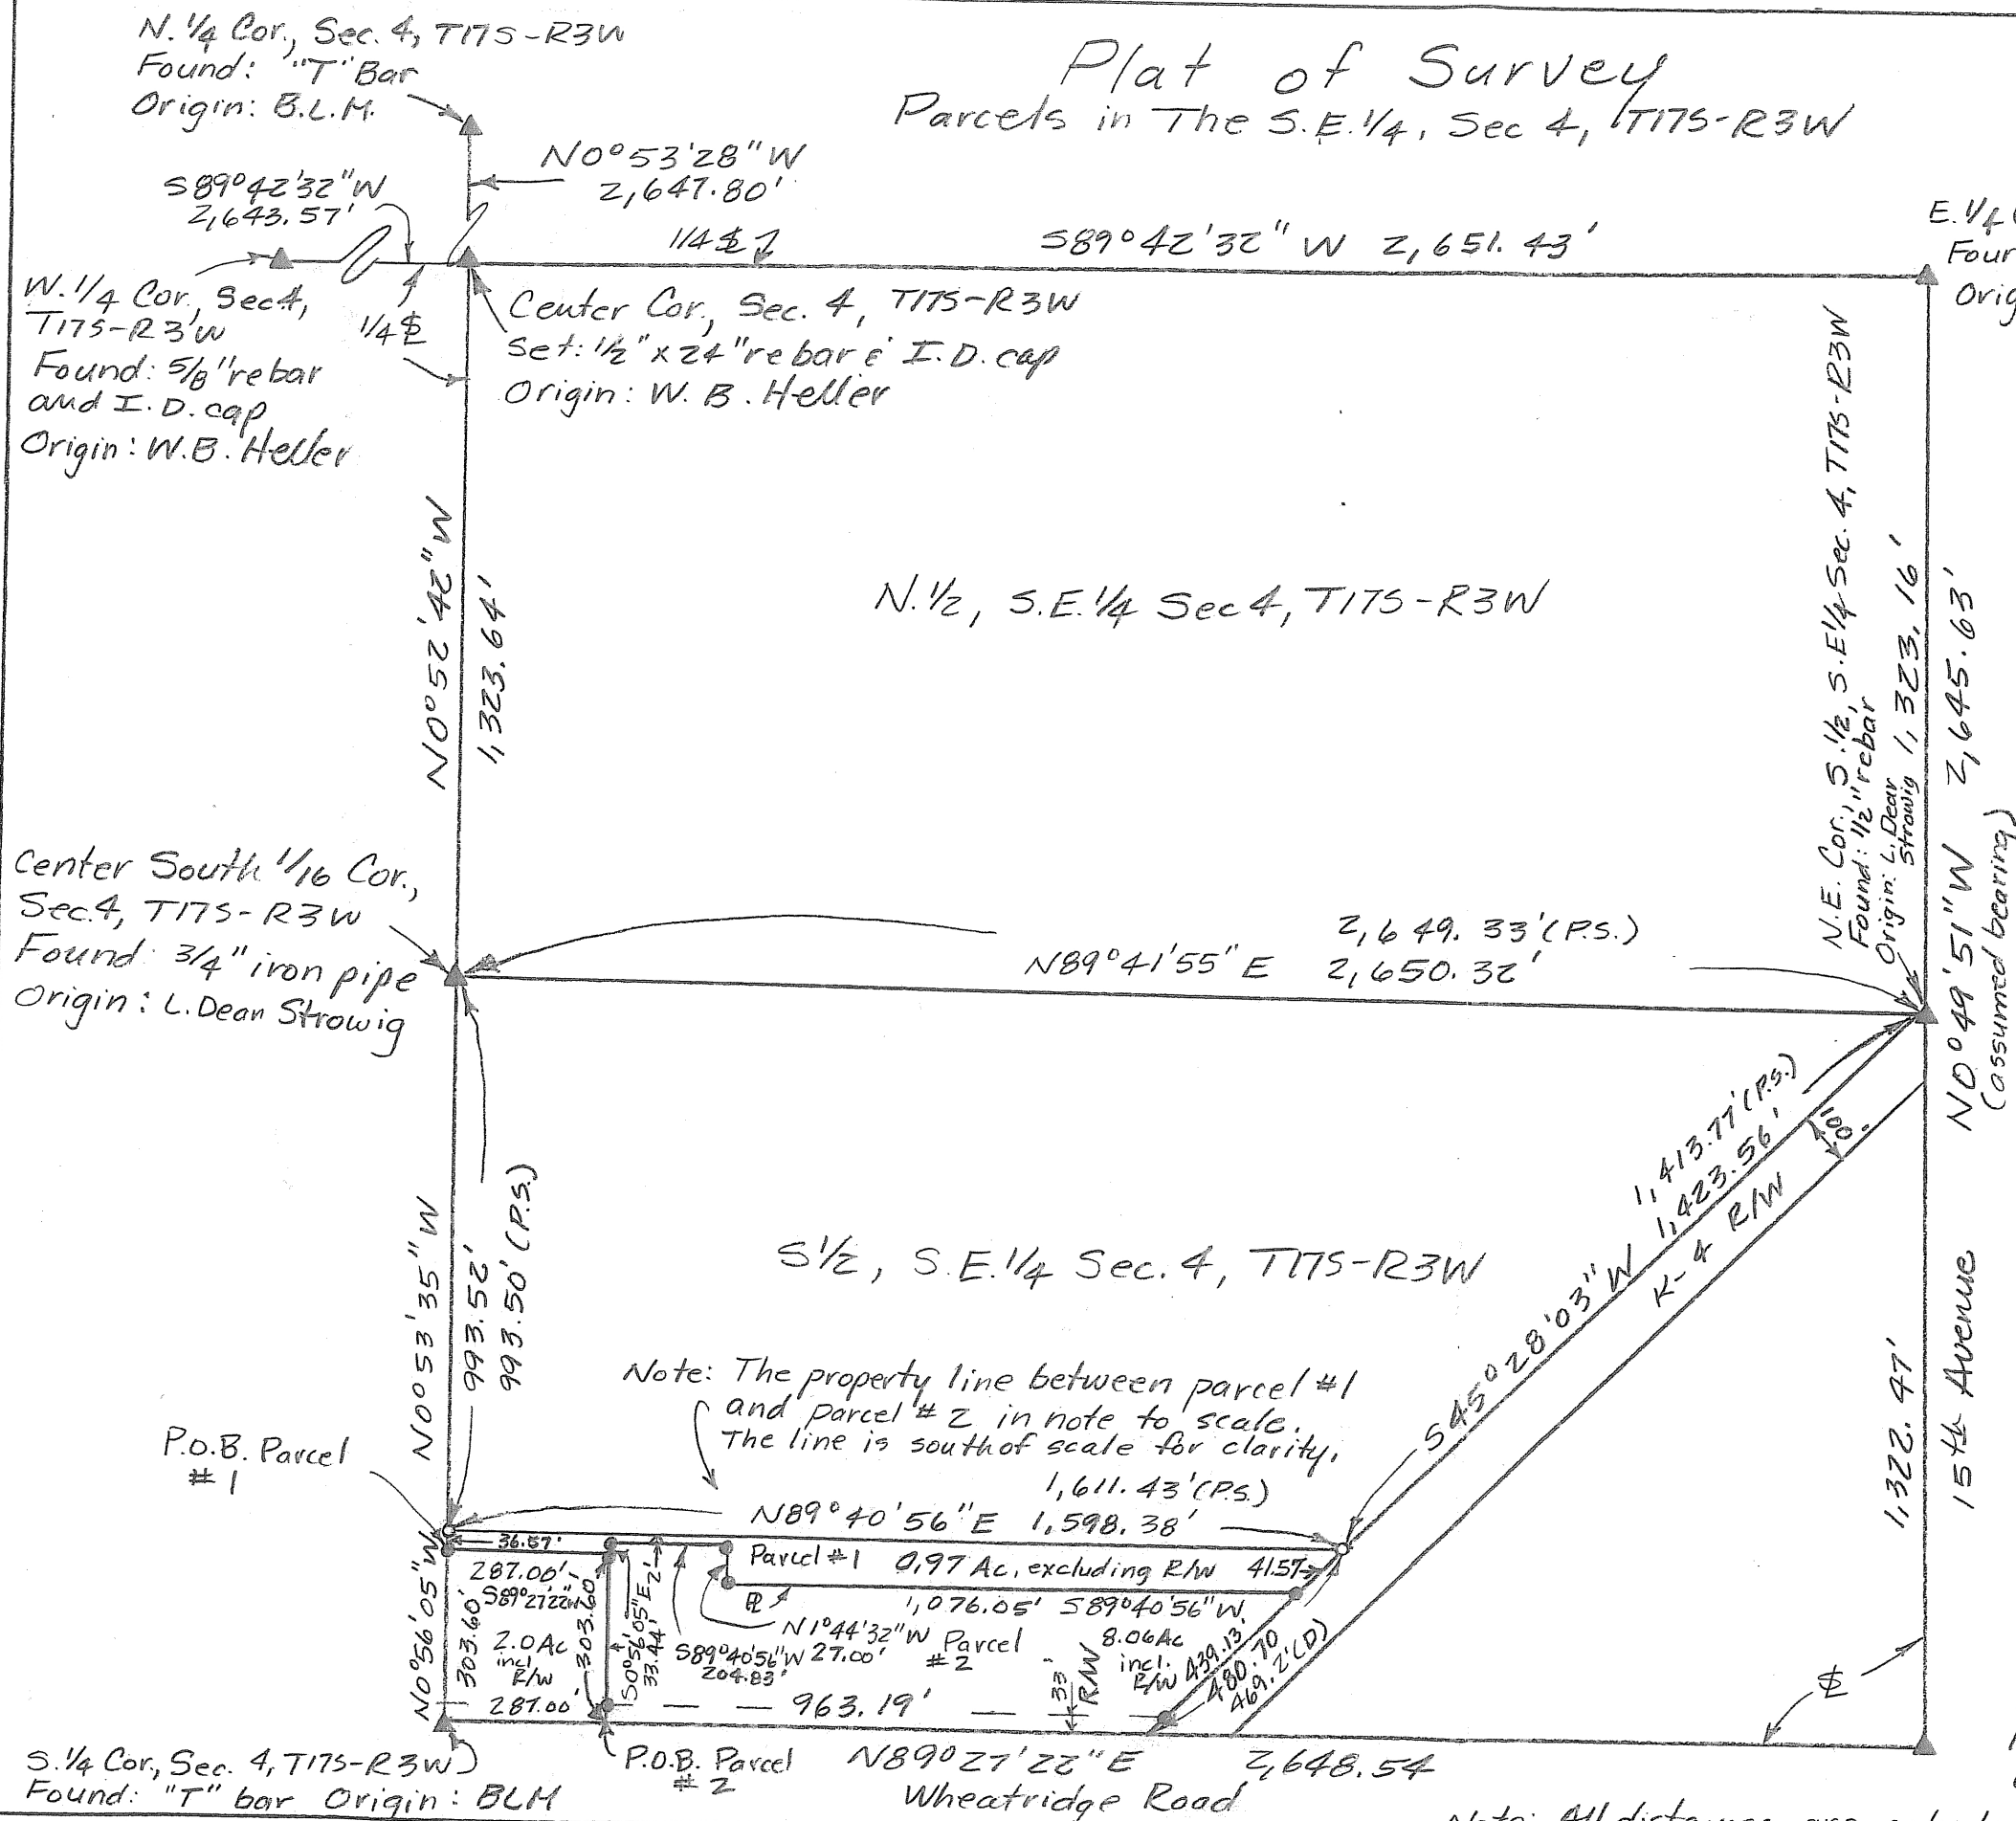 Plat of Survey
Parcels in The S.E.1/4, Sec 4, T17S-R3W
N. 1/4 Cor., Sec. 4, T17S-R3W
Found: "T" Bar
Origin: B.L.M.
N0°53'28"W
2,647.80'
S89°42'32"W
2,643.57'
1/4 ℄
S89°42'32" W 2,651.43'
E. 1/4
W. 1/4 Cor., Sec 4,
T17S-R3W
Found: 5/8" rebar
and I.D. cap
Origin: W.B. Heller
1/4 ℄
Center Cor., Sec. 4, T17S-R3W
Set: 1/2" x 24" rebar & I.D. cap
Origin: W. B. Heller
N0°52'42"W
1,323.64'
N. 1/2, S.E. 1/4 Sec 4, T17S-R3W
N.E. Cor., S. 1/2, S.E 1/4 Sec. 4, T17S-R3W
Found: 1/2" rebar
Origin: L. Dean
Strowig
1,323.16'
N0°49'51"W 2,645.63'
(assumed bearing)
Center South 1/16 Cor.,
Sec. 4, T17S-R3W
Found: 3/4" iron pipe
Origin: L. Dean Strowig
2,649.33' (P.S.)
N89°41'55" E 2,650.32'
1,413.77' (P.S.)
S45°28'03"W 1,423.56'
100'
K-4 R/W
N0°53'35"W
993.52'
993.50' (P.S.)
S 1/2, S.E. 1/4 Sec. 4, T17S-R3W
1,322.47'
15th Avenue
Note: The property line between parcel #1
and parcel #2 in note to scale.
The line is south of scale for clarity.
P.O.B. Parcel
#1
1,611.43' (P.S.)
N89°40'56"E 1,598.38'
36.57'
Parcel #1 0.97 Ac. excluding R/W 41.57
287.00'
S89°27'22"W
2'
℄
1,076.05' S89°40'56"W
N0°56'05"W
303.60'
303.60'
S0°56'05"E
33.44'
2.0 Ac
incl.
R/W
287.00'
N1°44'32"W
27.00'
S89°40'56"W
204.83'
Parcel
#2
8.06 Ac
incl.
R/W
439.13'
480.70
469.2' (D)
33'
R/W
963.19'
℄
S. 1/4 Cor., Sec. 4, T17S-R3W
Found: "T" bar Origin: BLM
P.O.B. Parcel
#2
N89°27'22"E 2,648.54
Wheatridge Road
Note: All distances are